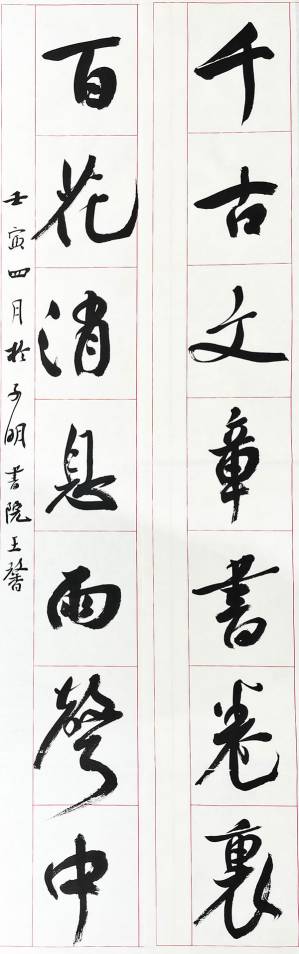 千古文章書卷裏
百花消息雨聲中
壬寅四月於子明書院王馨